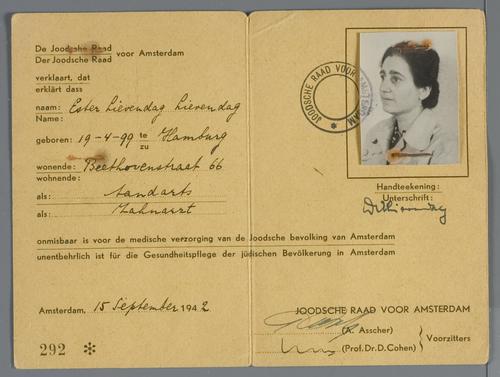 De Joodsche Raad voor Amsterdam
Der Joodsche Raad
verklaart, dat
erklärt dass
naam: Ester Lievendag Lievendag
Name:
geboren: 19-4-99 te Hamburg
zu
wonende: Beethovenstraat 66
wohnende:
als: tandarts
als: Zahnarzt
onmisbaar is voor de medische verzorging van de Joodsche bevolking van Amsterdam
unentbehrlich ist für die Gesundheitspflege der jüdischen Bevölkerung in Amsterdam
Amsterdam, 15 September 1942
292 ✻
JOODSCHE RAAD VOOR AMSTERDAM ✻
Handteekening:
Unterschrift:
JOODSCHE RAAD VOOR AMSTERDAM
(A. Asscher)
(Prof. Dr. D. Cohen)
Voorzitters